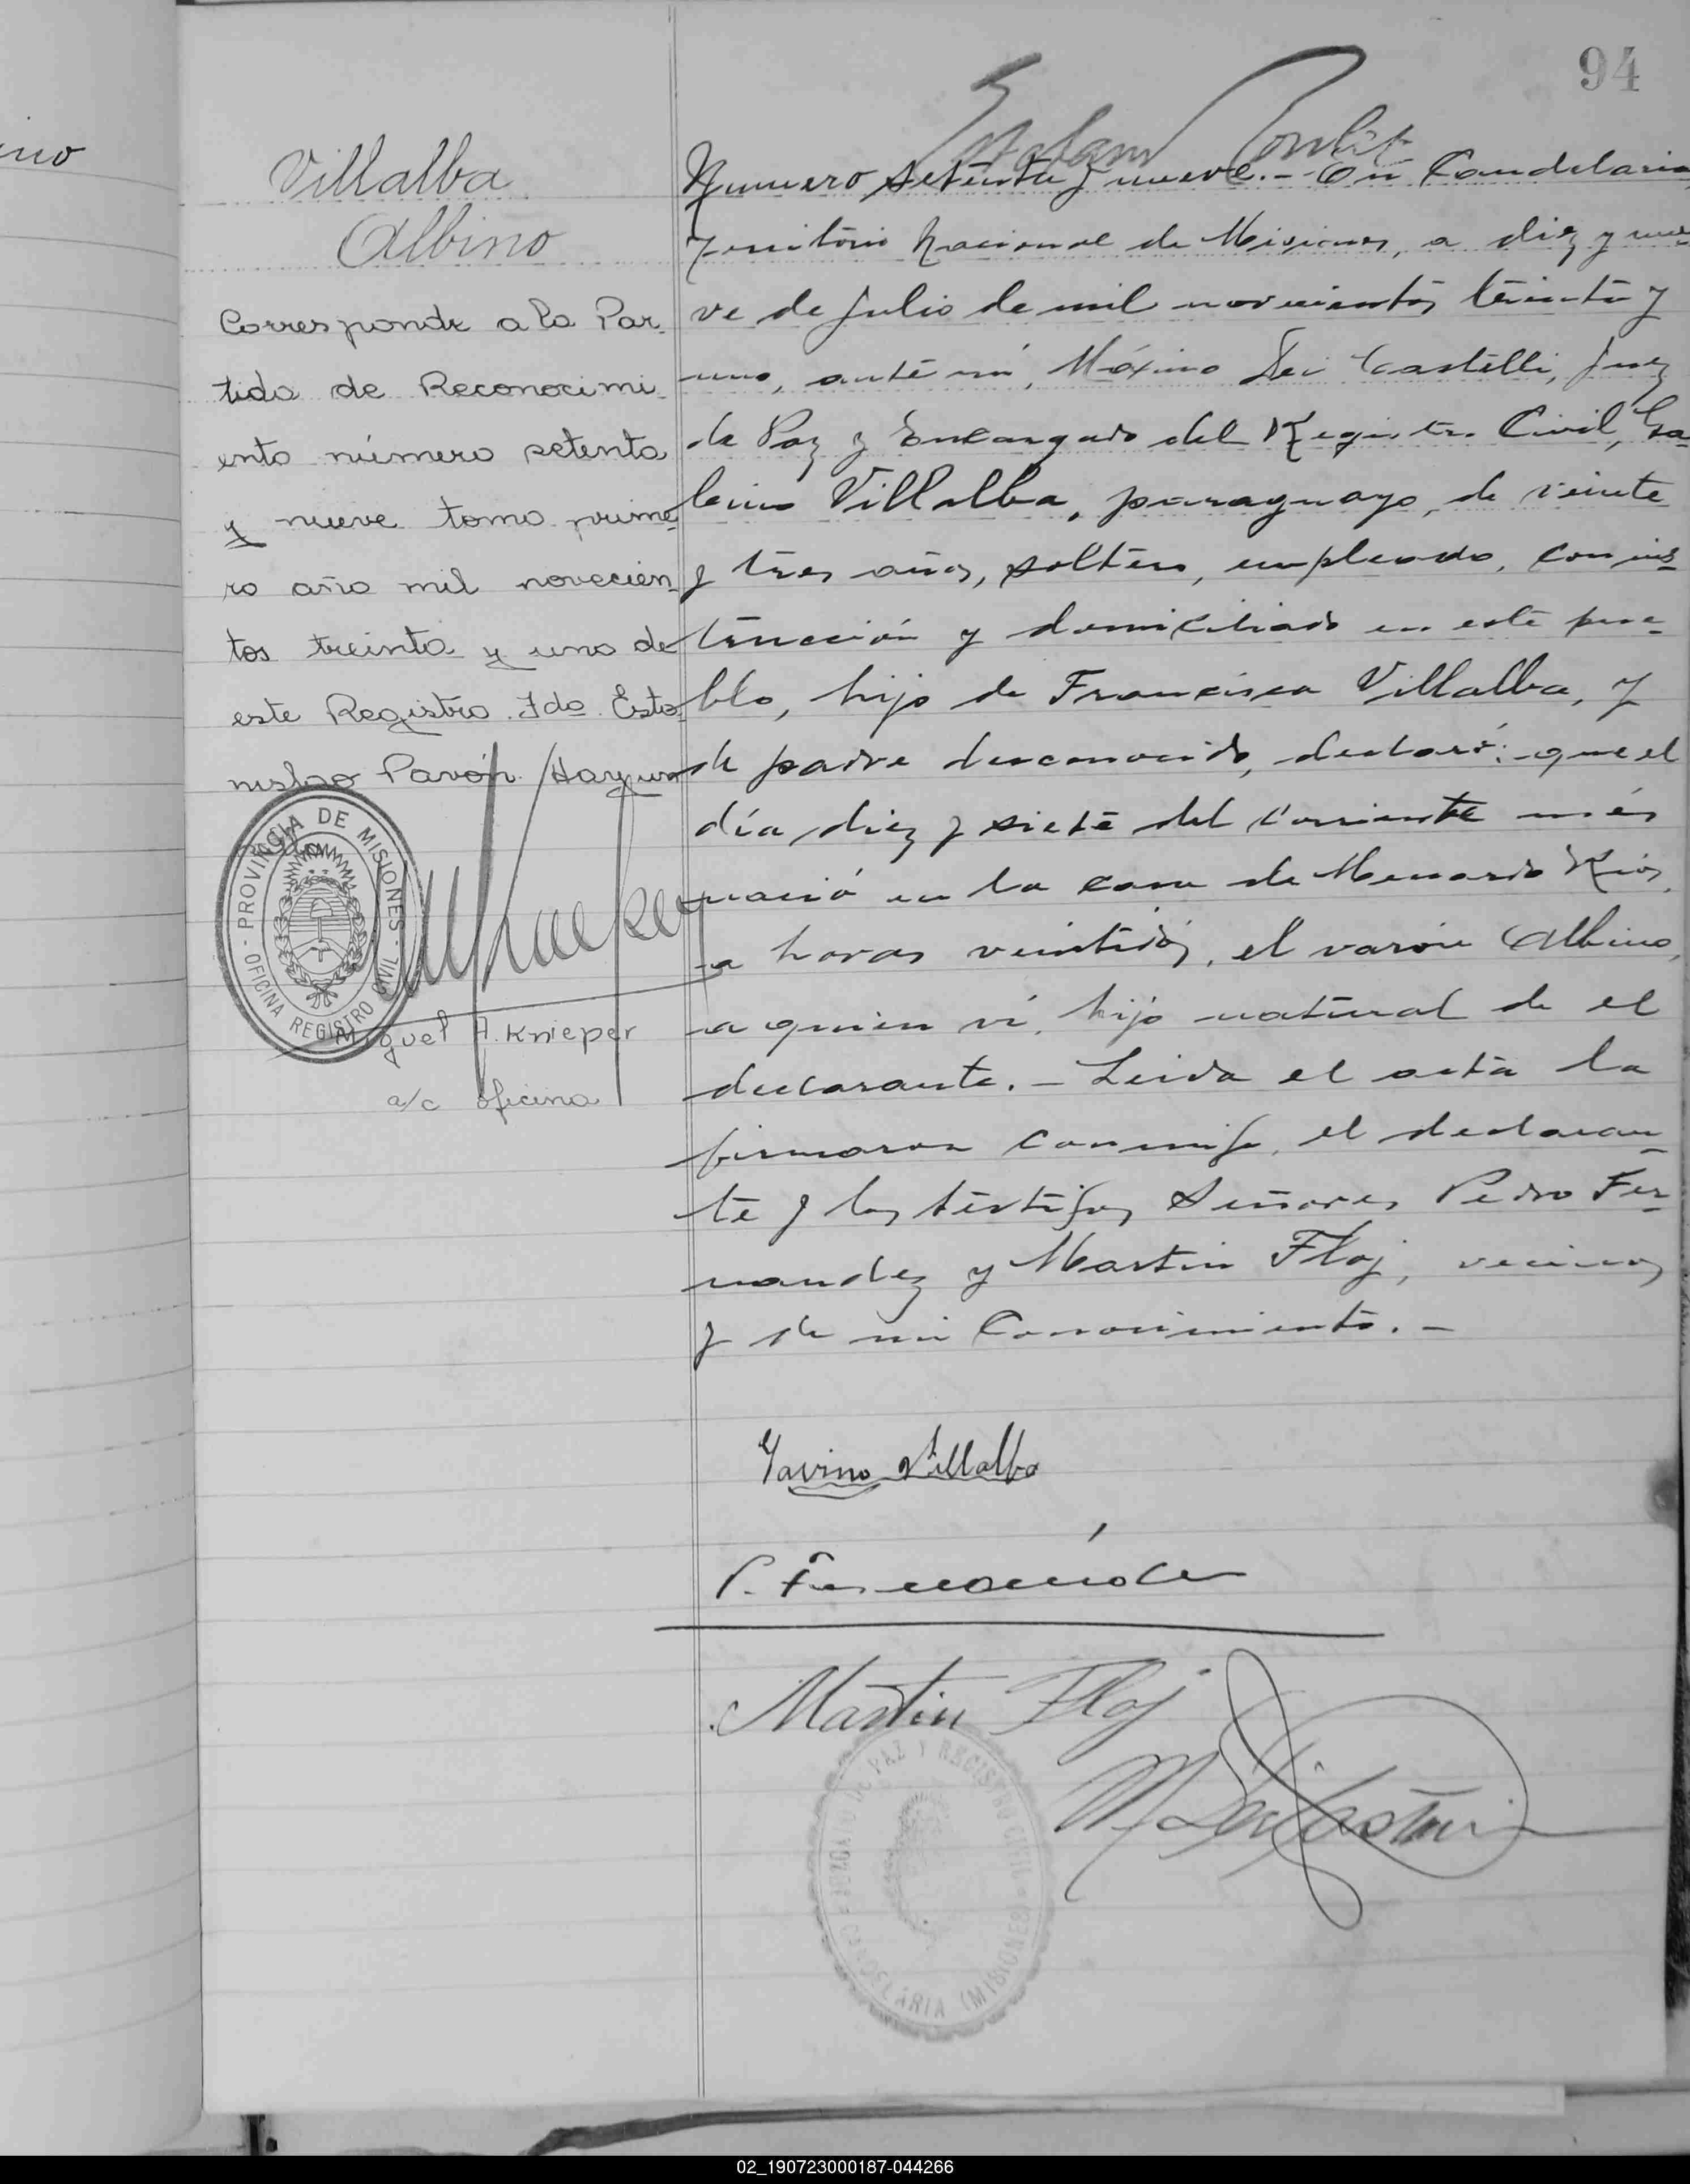 94
Villalba
Albino
Corresponde a la Par-
tida de Reconocimi-
ento número setenta
y nueve tomo prime-
ro año mil novecien-
tos treinta y uno de
este Registro Fdo. Esta-
nislao Pavón. Hay un
sello
PROVINCIA DE MISIONES - OFICINA REGISTRO CIVIL -
Miguel A. Knieper
a/c oficina
Numero setenta y nueve. - En Candelaria
Territorio Nacional de Misiones, a diez y nue-
ve de Julio de mil novecientos treinta y
uno, ante mí, Máximo Dei Castelli, Juez
de Paz y Encargado del Registro Civil, Ga-
bino Villalba, paraguayo, de veinte
y tres años, soltero, empleado, con ins-
trucción y domiciliado en este pue-
blo, hijo de Francisca Villalba, y
de padre desconocido, declaró: que el
día diez y siete del corriente més
nació en la casa de Menardo Ríos,
a horas veintidós, el varón Albino,
a quien ví, hijo natural de el
declarante. - Leida el acta la
firmaron conmigo, el declaran-
te y los testigos Señores Pedro Fer-
nandez y Martin Floj, vecinos
y de mi conocimiento. -
Gavino Villalba
P. Fernández
Martin Floj
M. Dei Castelli
JUZGADO DE PAZ Y REGISTRO CIVIL
CANDELARIA (MISIONES)
02_190723000187-044266